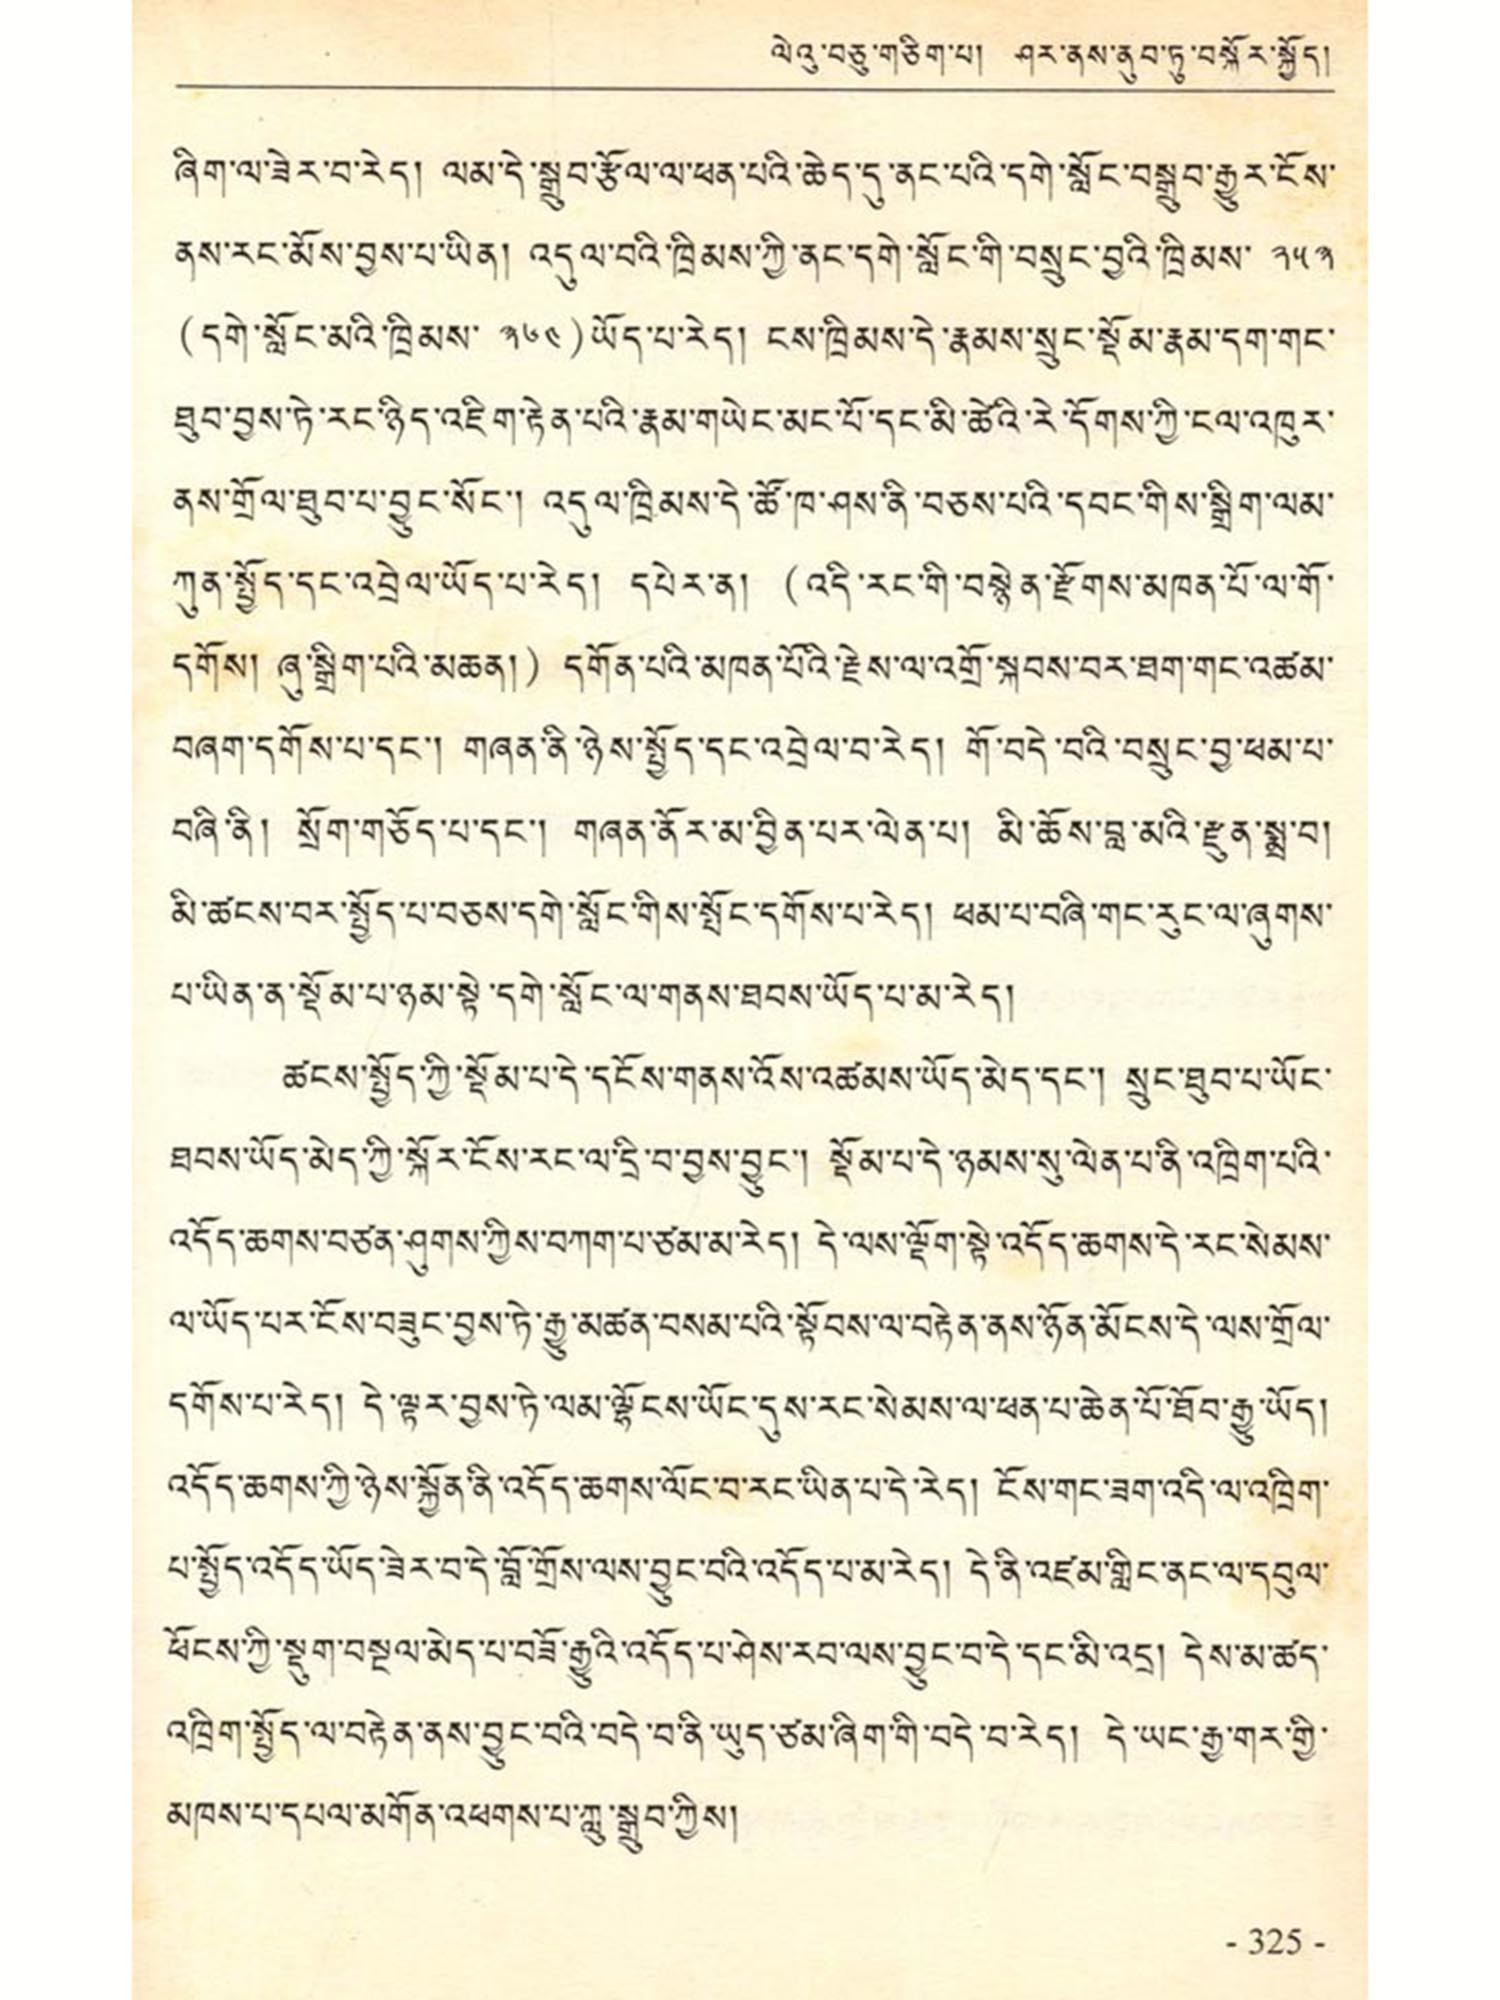 ལེའུ་བཅུ་གཅིག་པ། ཤར་ནས་ནུབ་ཏུ་བསྐོར་སྐྱོད།
ཞིག་ལ་ཟེར་བ་རེད། ལམ་དེ་སྒྲུབ་རྩོལ་ལ་ཕན་པའི་ཆེད་དུ་ནང་པའི་དགེ་སློང་བསྒྲུབ་རྒྱུར་ངོས་
ནས་རང་མོས་བྱས་པ་ཡིན། འདུལ་བའི་ཁྲིམས་ཀྱི་ནང་དགེ་སློང་གི་བསྲུང་བྱའི་ཁྲིམས་ ༢༥༣
(དགེ་སློང་མའི་ཁྲིམས་ ༣༦༤)ཡོད་པ་རེད། ངས་ཁྲིམས་དེ་རྣམས་སྲུང་སྡོམ་རྣམ་དག་གང་
ཐུབ་བྱས་ཏེ་རང་ཉིད་འཇིག་རྟེན་པའི་རྣམ་གཡེང་མང་པོ་དང་མི་ཚེའི་རེ་དོགས་ཀྱི་ངལ་འཁུར་
ནས་གྲོལ་ཐུབ་པ་བྱུང་སོང་། འདུལ་ཁྲིམས་དེ་ཚོ་ཁ་ཤས་ནི་བཅས་པའི་དབང་གིས་སྒྲིག་ལམ་
ཀུན་སྤྱོད་དང་འབྲེལ་ཡོད་པ་རེད། དཔེར་ན། (འདི་རང་གི་བསྙེན་རྫོགས་མཁན་པོ་ལ་གོ་
དགོས། ཞུ་སྒྲིག་པའི་མཆན།) དགོན་པའི་མཁན་པོའི་རྗེས་ལ་འགྲོ་སྐབས་བར་ཐག་གང་འཚམ་
བཞག་དགོས་པ་དང་། གཞན་ནི་ཉེས་སྤྱོད་དང་འབྲེལ་བ་རེད། གོ་བདེ་བའི་བསྲུང་བྱ་ཕམ་པ་
བཞི་ནི། སྲོག་གཅོད་པ་དང་། གཞན་ནོར་མ་བྱིན་པར་ལེན་པ། མི་ཆོས་བླ་མའི་རྫུན་སྨྲ་བ།
མི་ཚངས་བར་སྤྱོད་པ་བཅས་དགེ་སློང་གིས་སྤོང་དགོས་པ་རེད། ཕམ་པ་བཞི་གང་རུང་ལ་ཞུགས་
པ་ཡིན་ན་སྡོམ་པ་ཉམ་སྟེ་དགེ་སློང་ལ་གནས་ཐབས་ཡོད་པ་མ་རེད།
ཚངས་སྤྱོད་ཀྱི་སྡོམ་པ་དེ་དངོས་གནས་འོས་འཚམས་ཡོད་མེད་དང་། སྲུང་ཐུབ་པ་ཡོང་
ཐབས་ཡོད་མེད་ཀྱི་སྐོར་ངོས་རང་ལ་དྲི་བ་བྱས་བྱུང་། སྡོམ་པ་དེ་ཉམས་སུ་ལེན་པ་ནི་འཁྲིག་པའི་
འདོད་ཆགས་བཙན་ཤུགས་ཀྱིས་བཀག་པ་ཙམ་མ་རེད། དེ་ལས་ལྡོག་སྟེ་འདོད་ཆགས་དེ་རང་སེམས་
ལ་ཡོད་པར་ངོས་བཟུང་བྱས་ཏེ་རྒྱུ་མཚན་བསམ་པའི་སྟོབས་ལ་བརྟེན་ནས་ཉོན་མོངས་དེ་ལས་གྲོལ་
དགོས་པ་རེད། དེ་ལྟར་བྱས་ཏེ་ལམ་ལྷོངས་ཡོང་དུས་རང་སེམས་ལ་ཕན་པ་ཆེན་པོ་ཐོབ་རྒྱུ་ཡོད།
འདོད་ཆགས་ཀྱི་ཉེས་སྐྱོན་ནི་འདོད་ཆགས་ལོང་བ་རང་ཡིན་པ་དེ་རེད། ངོས་གང་ཟག་འདི་ལ་འཁྲིག་
པ་སྤྱོད་འདོད་ཡོད་ཟེར་བ་དེ་བློ་གྲོས་ལས་བྱུང་བའི་འདོད་པ་མ་རེད། དེ་ནི་འཛམ་གླིང་ནང་ལ་དབུལ་
ཕོངས་ཀྱི་སྡུག་བསྔལ་མེད་པ་བཟོ་རྒྱུའི་འདོད་པ་ཤེས་རབ་ལས་བྱུང་བ་དེ་དང་མི་འདྲ། དེས་མ་ཚད་
འཁྲིག་སྤྱོད་ལ་བརྟེན་ནས་བྱུང་བའི་བདེ་བ་ནི་ཡུད་ཙམ་ཞིག་གི་བདེ་བ་རེད། དེ་ཡང་རྒྱ་གར་གྱི་
མཁས་པ་དཔལ་མགོན་འཕགས་པ་ཀླུ་སྒྲུབ་ཀྱིས།
- 325 -